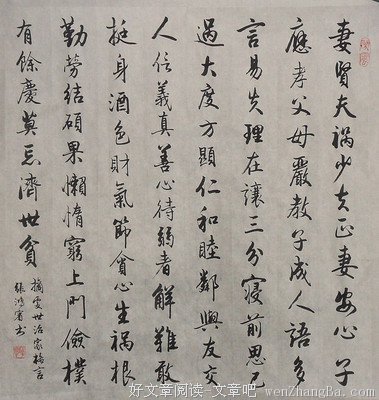 妻賢夫祸少夫正妻安心子
應孝父母嚴教子成人語多
言易失理在讓三分寢前思己
過大度方顯仁和睦鄰與友交
人信義真善心待弱者解難敢
挺身酒色財氣節貪心生祸根
勤勞結碩果懶惰窮上門儉樸
有餘慶莫忘濟世貧
摘處世治家格言
張鴻书
好文章阅读-文章吧 wenZhangBa.com